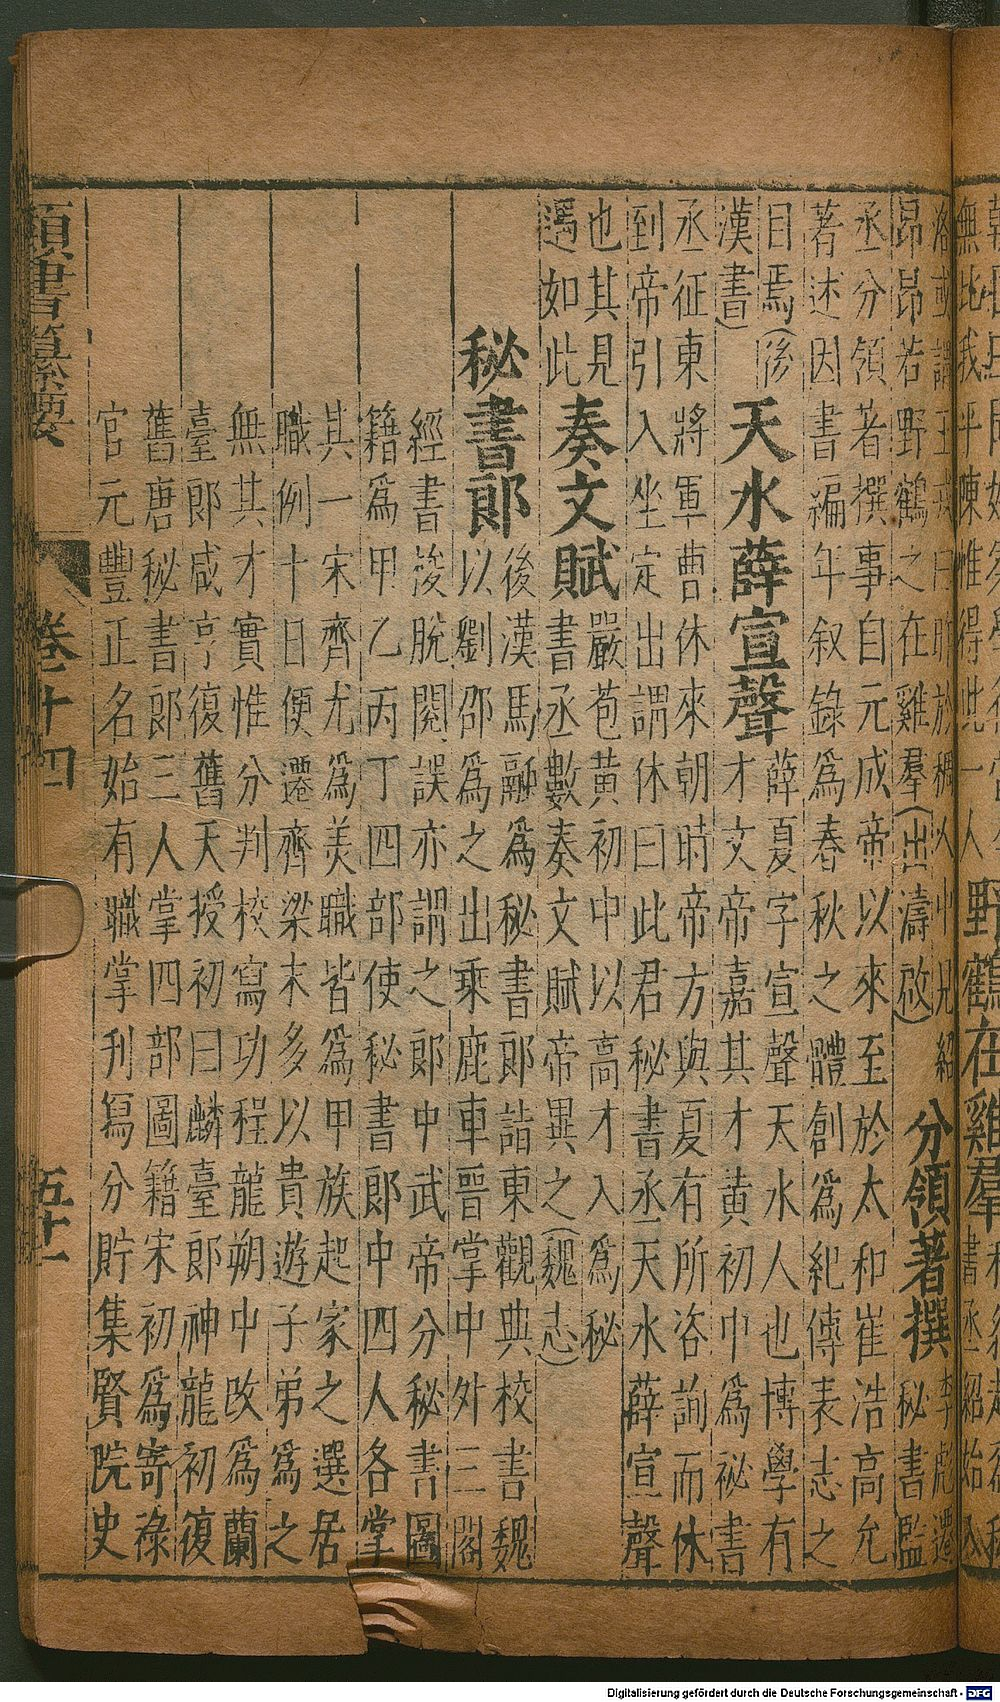 無比我平陳惟得此一人
野鶴在雞羣
書丞紹始入
洛或謂王戎曰昨於稠人中見紹
昂昂若野鶴之在雞羣(出濤啟)
分領著撰
李彪遷
秘書監
丞分領著撰事自元成帝以來至於太和崔浩高允
著述因書編年叙錄爲春秋之體創爲紀傳表志之
目焉(後
漢書)
天水薛宣聲
薛夏字宣聲天水人也博學有
才文帝嘉其才黄初中爲祕書
丞征東將軍曹休來朝時帝方與夏有所咨詢而休
到帝引入坐定出謂休曰此君秘書丞天水薛宣聲
也其見
遇如此
奏文賦
嚴苞黄初中以高才入爲秘
書丞數奏文賦帝異之(魏志)
秘書郎
後漢馬融爲秘書郎詣東觀典校書魏
以劉邵爲之出乘鹿車晉掌中外三閣
經書脫閱誤亦謂之郎中武帝分秘書圖
籍爲甲乙丙丁四部使秘書郎中四人各掌
其一宋齊尤爲美職皆爲甲族起家之選居
職例十日便遷齊梁末多以貴遊子弟爲之
無其才實惟分判校寫功程龍朔中改爲蘭
臺郎咸亨復舊天授初曰麟臺郎神龍初復
舊唐秘書郎三人掌四部圖籍宋初爲寄祿
官元豐正名始有職掌刋寫分貯集賢院史
類書纂要 卷十四 五十一
Digitalisierung gefördert durch die Deutsche Forschungsgemeinschaft - DFG